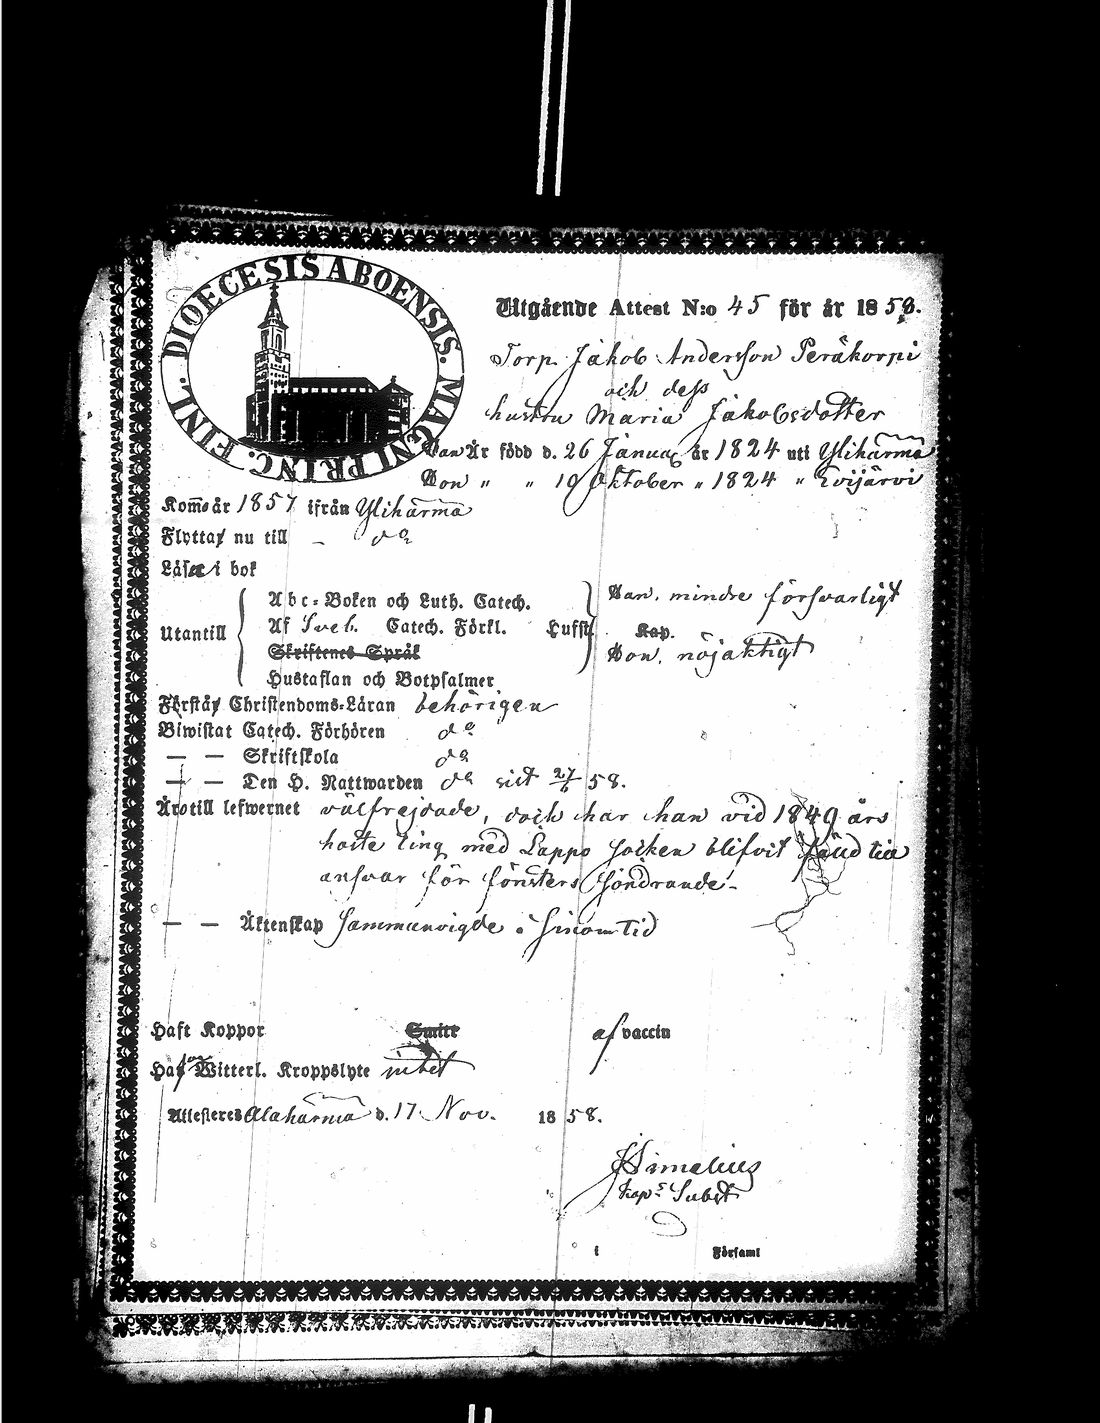 DIOECESIS ABOENSIS. MAGNI PRINC. FINL.
Utgående Attest N:o 45 för år 1858.
Torp. Jakob Andersson Peräkorpi
och dess
hustru Maria Jakobsdotter
Han Är född d. 26 Januar år 1824 uti Ylihärmä
Hon " " 10 Oktober " 1824 " Evijärvi
Kom̄o år 1857 ifrån Ylihärmä
Flytta nu till - do
Läsa i bok
Abc-Boken och Luth. Catech.
Han. mindre försvarligt
Utantill
Af Sveb. Catech. Förkl. Hufst. Kap.
Skriftenes Språk
Hon. nöjaktigt
Hustaflan och Botpsalmer
Förstå Christendoms-Läran behörigen
Biwistat Catech. Förhören do
— — Skriftskola do
— — Den H. Nattwarden do sist 27/6 58.
Äro till lefwernet välfrejdade, dock har han vid 1849 års
höste ting med Lappo socken blifvit fälld till
ansvar för fönsters söndrande-
— — Äktenskap sammanvigde i sinom tid
Haft Koppor Smitt af vaccin
Ha Witterl. Kroppslyte intet
Attesteras Alahärmä d. 17 Nov. 1858.
Simelius
Kaps Subst
i Församl